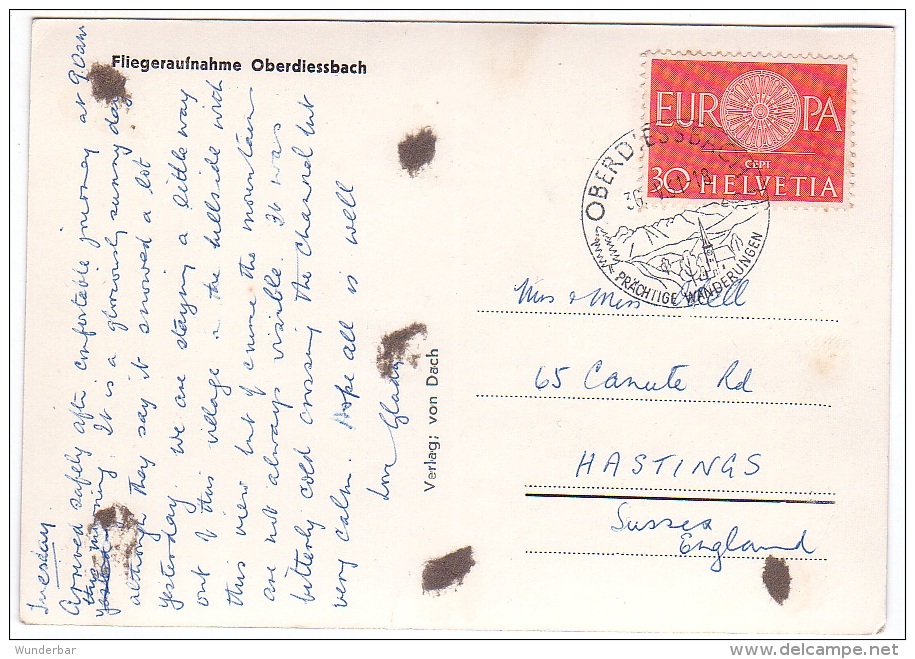 Fliegeraufnahme Oberdiessbach
Tuesday
Arrived safely after comfortable journey at 9.0am
this morning. It is a gloriously sunny day
although they say it snowed a lot
yesterday. We are staying a little way
out of this village on the hillside with
this view but of course the mountains
are not always visible. It was
bitterly cold crossing the Channel but
very calm. Hope all is well
Love Gladys
Verlag: von Dach
EUROPA
CEPT
30 HELVETIA
OBERDIESSBACH
30.
18
PRÄCHTIGE WANDERUNGEN
Mrs & Miss
65 Canute Rd
HASTINGS
Sussex
England
Wunderbar
www.delcampe.net